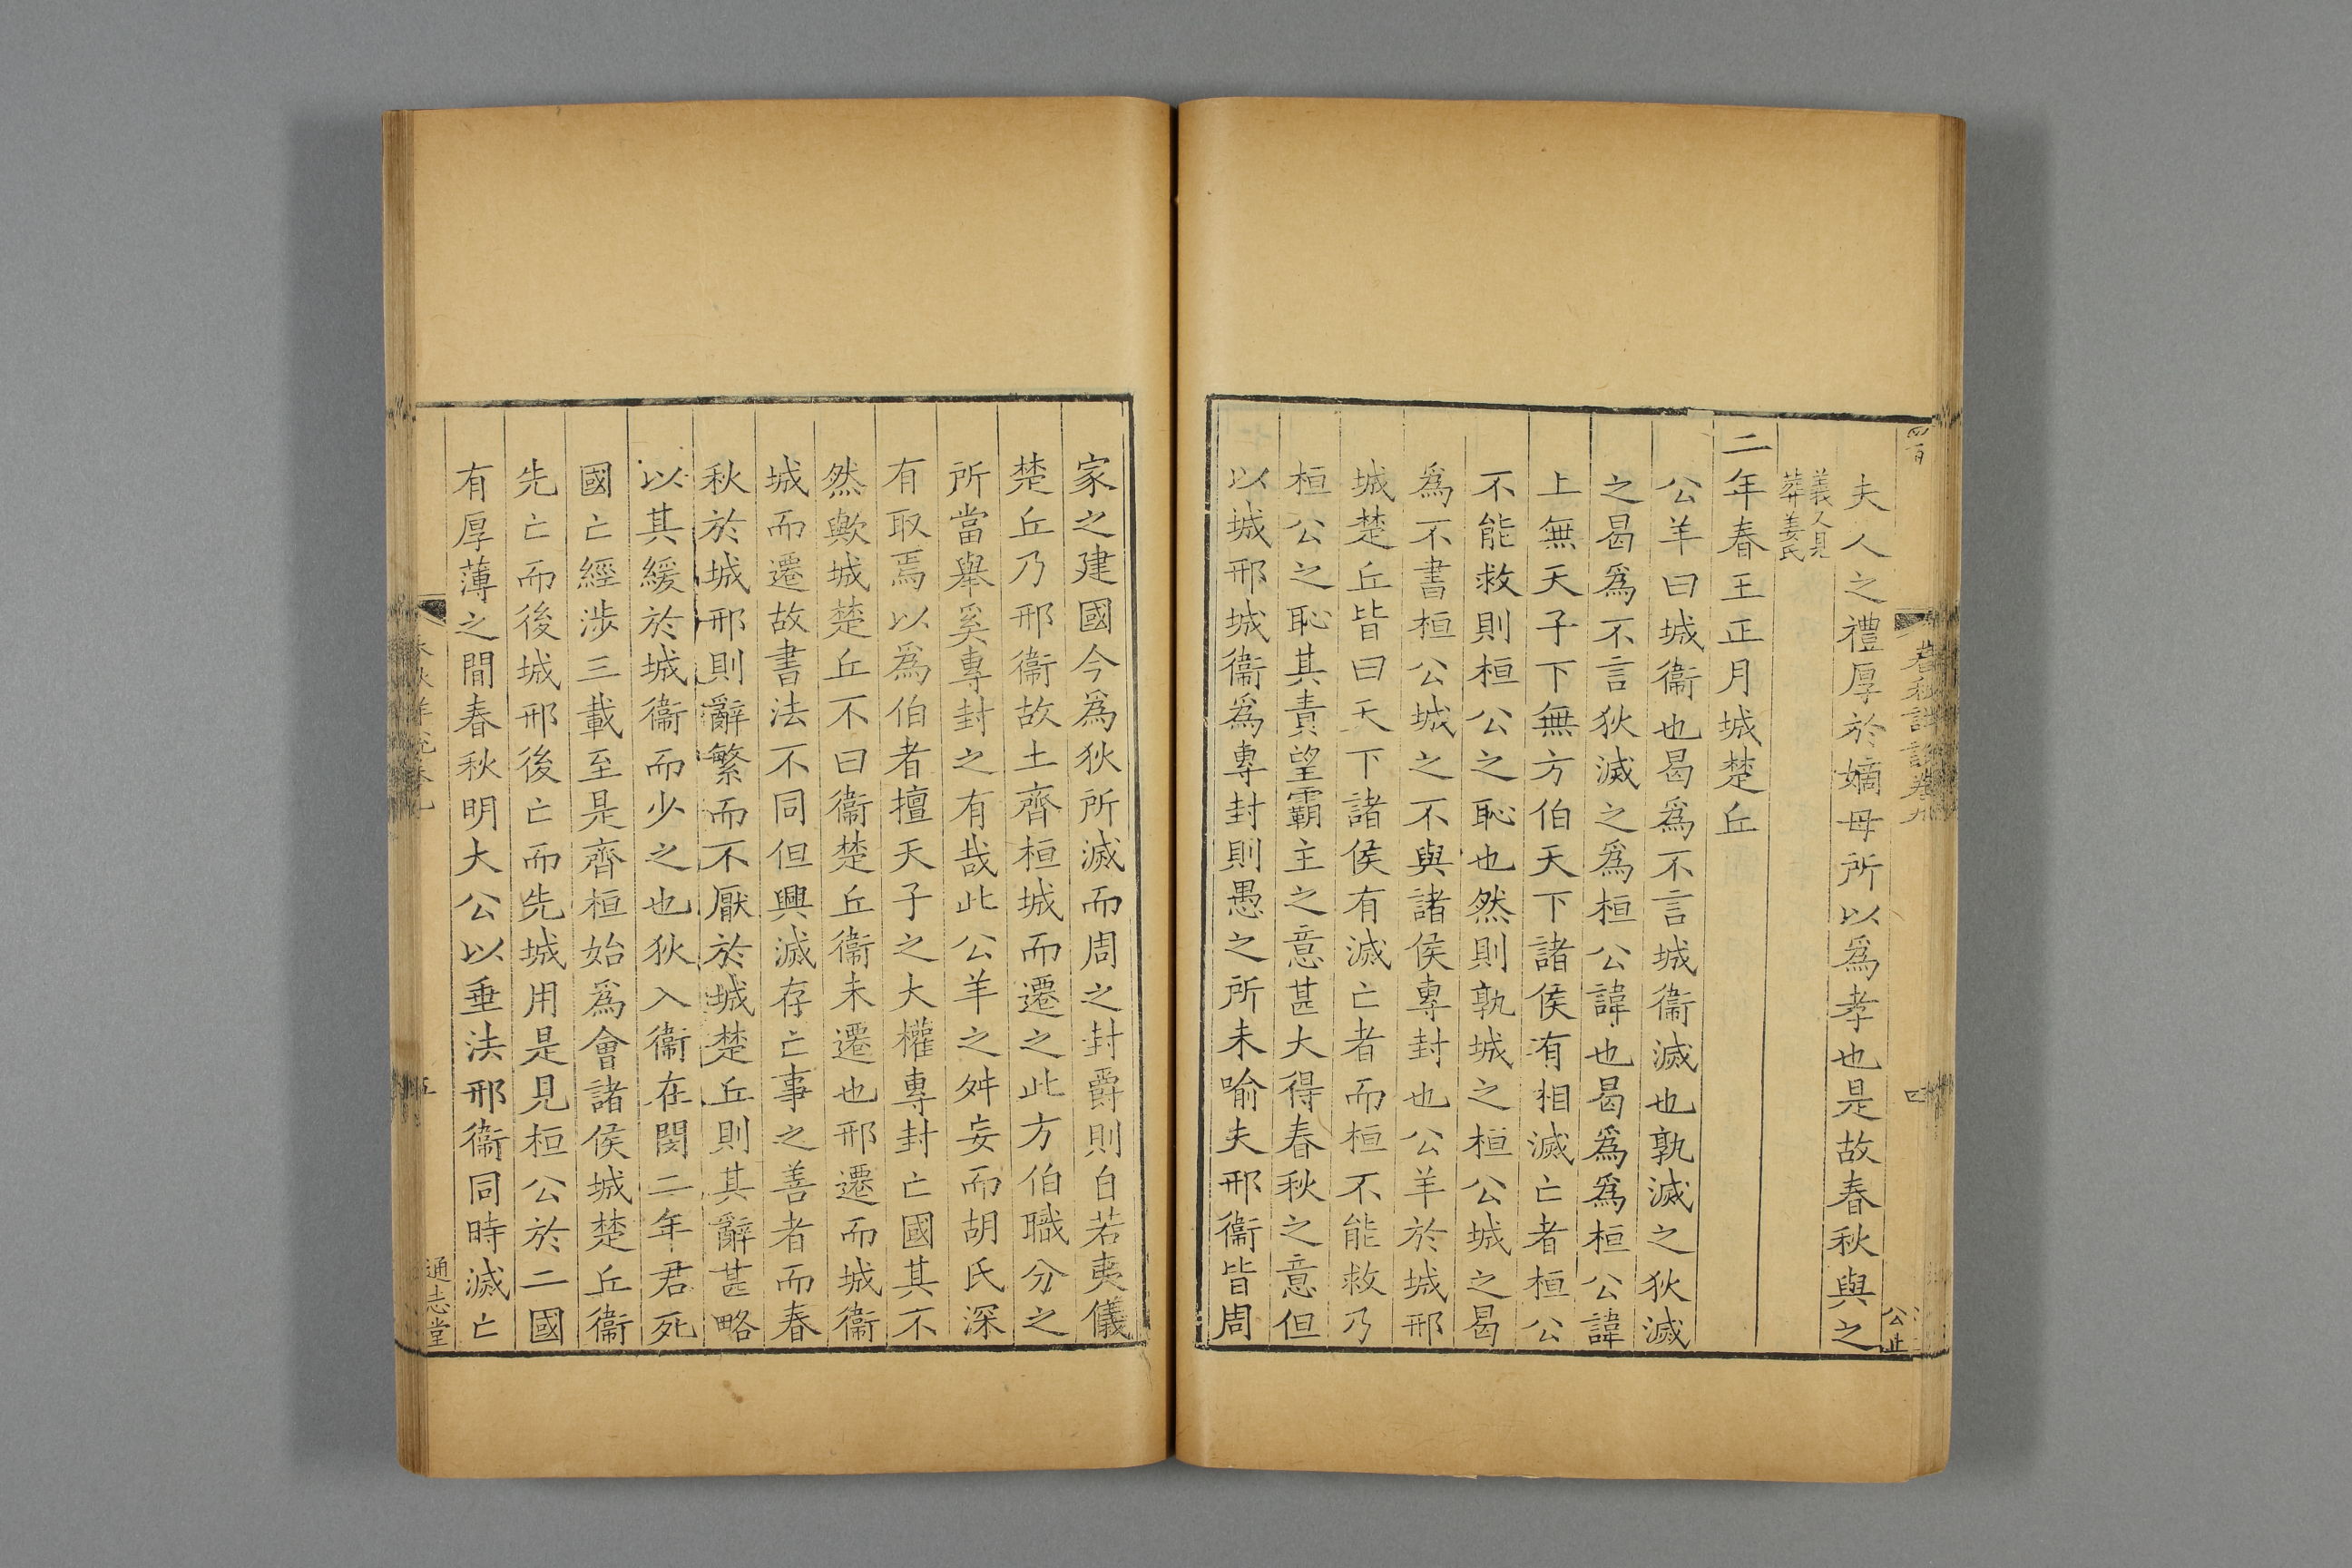 夫人之禮厚於嫡母所以爲孝也是故春秋與之
義又見
葬姜氏
二年春王正月城楚丘
公羊曰城衞也曷爲不言城衞滅也孰滅之狄滅
之曷爲不言狄滅之爲桓公諱也曷爲爲桓公諱
上無天子下無方伯天下諸侯有相滅亡者桓公
不能救則桓公之恥也然則孰城之桓公城之曷
爲不書桓公城之不與諸侯專封也公羊於城邢
城楚丘皆曰天下諸侯有滅亡者而桓不能救乃
桓公之恥其責望霸主之意甚大得春秋之意但
以城邢城衞爲專封則愚之所未喻夫邢衞皆周
家之建國今爲狄所滅而周之封爵則自若夷儀
楚丘乃邢衞故土齊桓城而遷之此方伯職分之
所當舉奚專封之有哉此公羊之舛妄而胡氏深
有取焉以爲伯者擅天子之大權專封亡國其不
然歟城楚丘不曰衞楚丘衞未遷也邢遷而城衞
城而遷故書法不同但興滅存亡事之善者而春
秋於城邢則辭繁而不厭於城楚丘則其辭甚略
以其緩於城衞而少之也狄入衞在閔二年君死
國亡經涉三載至是齊桓始爲會諸侯城楚丘衞
先亡而後城邢後亡而先城用是見桓公於二國
有厚薄之間春秋明大公以垂法邢衞同時滅亡
通志堂